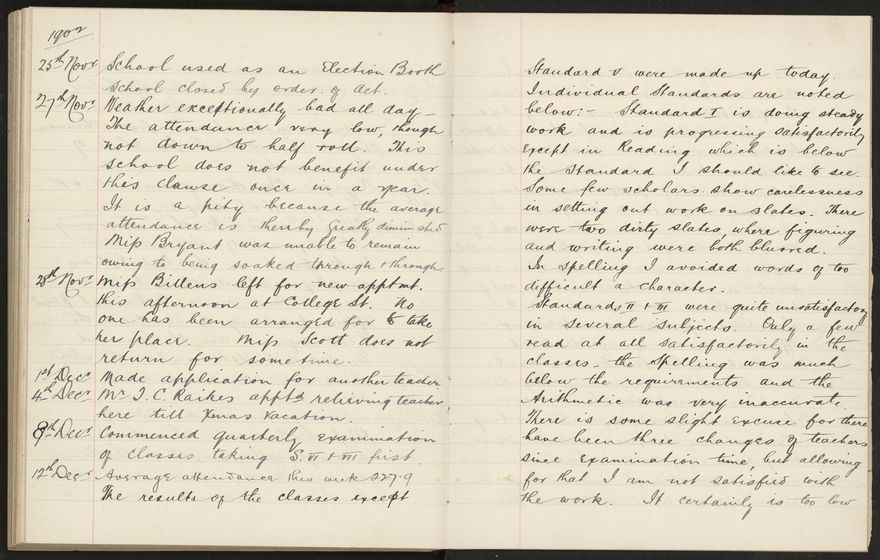 1902
25th Novr School used as an Election Booth
School closed by order of Act.
27th Novr Weather exceptionally bad all day –
The attendance very low, though
not down to half roll. This
school does not benefit under
this clause once in a year.
It is a pity because the average
attendance is thereby greatly diminished
Miss Bryant was unable to remain
owing to being soaked through & through
28th Novr Miss Bittens left for new apptmt.
this afternoon at College St. No
one has been arranged for to take
her place. Miss Scott does not
return for sometime.
1st Decr Made application for another teacher
4th Decr Mr J. C. Raikes apptd relieving teacher
here till Xmas vacation.
8th Decr Commenced quarterly examination
of classes taking S. VI & VII first.
12th Decr Average attendance this week 327.9
The results of the classes except
Standard V were made up today.
Individual Standards are noted
below:- Standard I is doing steady
work and is progressing satisfactorily
except in Reading which is below
the Standard I should like to see.
Some few scholars show carelessness
in setting out work on slates. There
were two dirty slates, where figuring
and writing were both blurred.
In spelling I avoided words of too
difficult a character.
Standards II & III were quite unsatisfactory
in several subjects. Only a few
read at all satisfactorily in the
classes – the spelling was much
below the requirements and the
Arithmetic was very inaccurate.
There is some slight excuse for there
have been three changes of teachers
since Examination time, but allowing
for that I am not satisfied with
the work. It certainly is too low